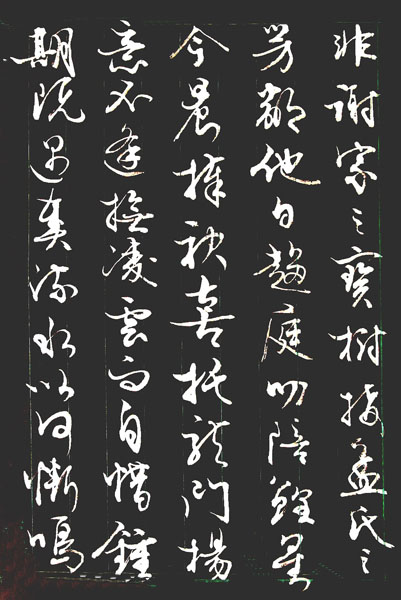 非謝家之寶樹接孟氏之
芳鄰他日趨庭叨陪鯉對
今晨捧袂喜托龍門楊
意不逢撫凌雲而自惜鍾
期既遇奏流水以何慚嗚